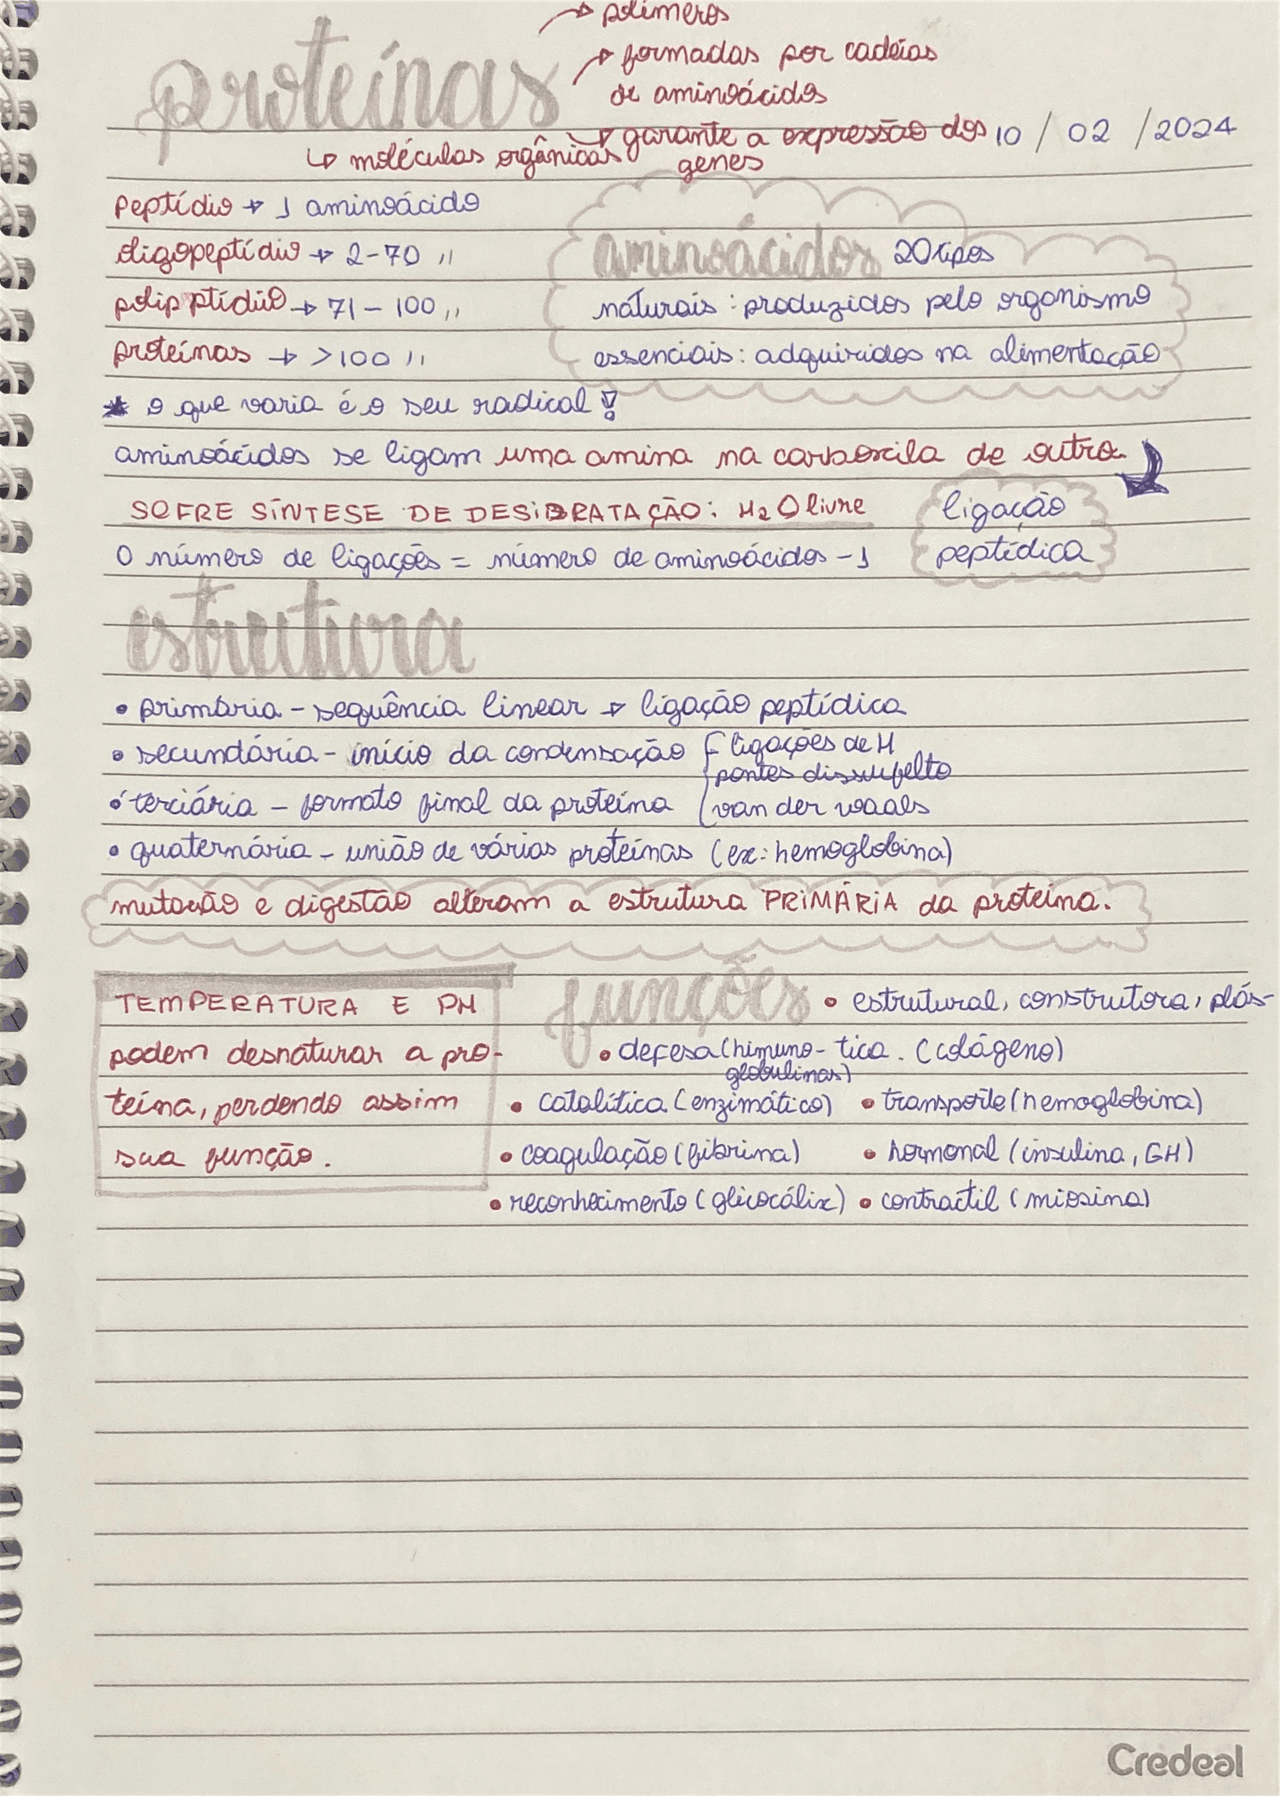 polímeros
proteínas
formadas por cadeias
de aminoácidos
garante a expressão dos 10 / 02 / 2024
↳ moléculas orgânicas genes
Peptídio → 1 aminoácido
oligopeptídio → 2-70 ,,
aminoácidos 20 tipos
polipptídio → 71 - 100 ,,
naturais: produzidos pelo organismo
proteínas → >100 ,,
essenciais: adquiridos na alimentação
* o que varia é o seu radical!
aminoácidos se ligam uma amina na carboxila de outro.
SOFRE SÍNTESE DE DESIDRATAÇÃO: H2O livre
ligação
O número de ligações = número de aminoácidos - 1
peptídica
estrutura
• primária - sequência linear → ligação peptídica
• secundária - início da condensação { ligações de H
pontes dissulfelto
• terciária - formato final da proteína van der waals
• quaternária - união de várias proteínas (ex: hemoglobina)
mutação e digestão alteram a estrutura PRIMÁRIA da proteína.
TEMPERATURA E PH
podem desnaturar a pro-
teína, perdendo assim
sua função.
funções • estrutural, construtora, plás-
• defesa (himuno- tica. (colágeno)
globulinas)
• catalítica (enzimático) • transporte (hemoglobina)
• coagulação (fibrina) • hormonal (insulina, GH)
• reconhecimento (glicocálix) • contractil (miosina)
Credeal